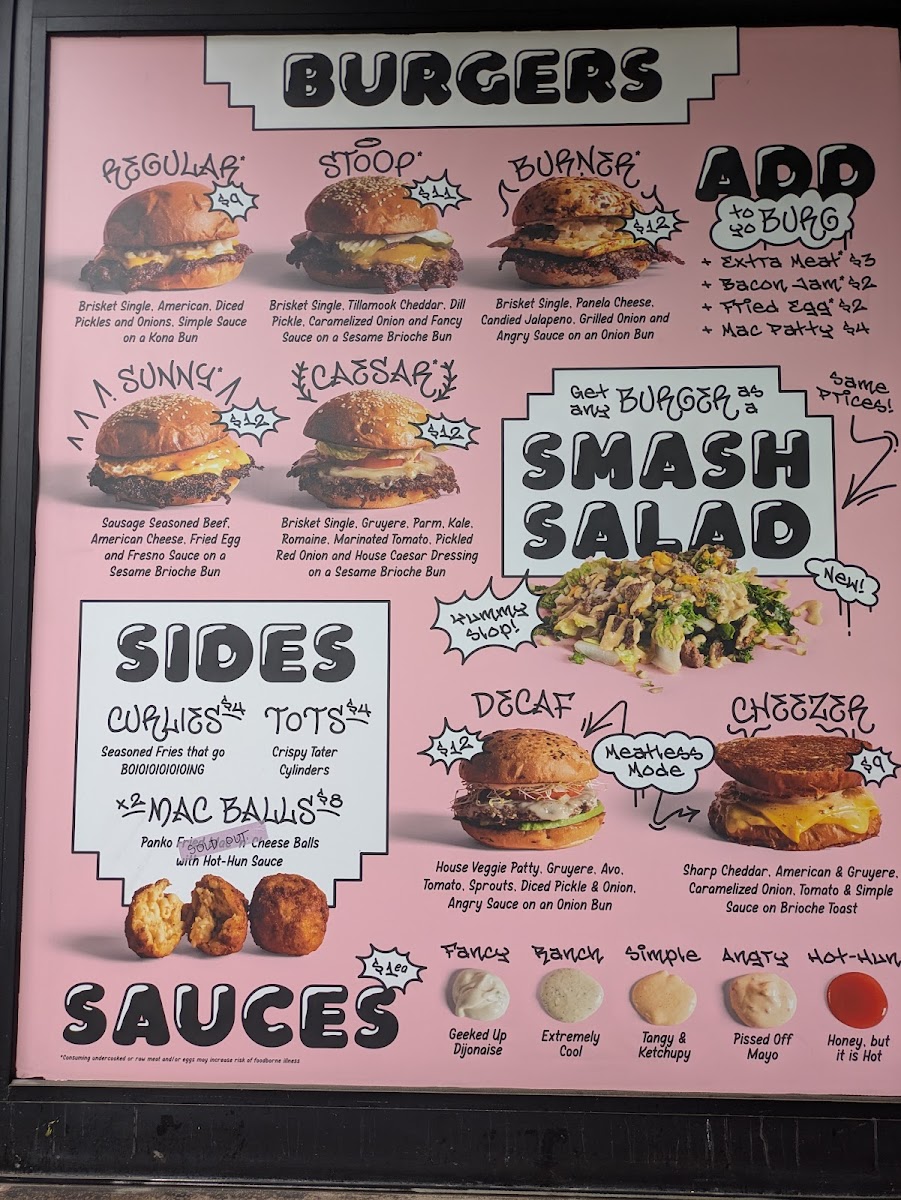 BURGERS
REGULAR*
$9
Brisket Single, American, Diced
Pickles and Onions, Simple Sauce
on a Kona Bun
STOOP*
$11
Brisket Single, Tillamook Cheddar, Dill
Pickle, Caramelized Onion and Fancy
Sauce on a Sesame Brioche Bun
BURNER*
$12
Brisket Single, Panela Cheese,
Candied Jalapeno, Grilled Onion and
Angry Sauce on an Onion Bun
ADD
to yo BURG
+ Extra Meat* $3
+ Bacon Jam* $2
+ Fried Egg* $2
+ Mac Patty $4
SUNNY*
$12
Sausage Seasoned Beef,
American Cheese, Fried Egg
and Fresno Sauce on a
Sesame Brioche Bun
CAESAR*
$12
Brisket Single, Gruyere, Parm, Kale,
Romaine, Marinated Tomato, Pickled
Red Onion and House Caesar Dressing
on a Sesame Brioche Bun
Get any BURGER as a
SMASH
SALAD
Same
Prices!
New!
Yummy
Slop!
SIDES
CURLIES $4
Seasoned Fries that go
BOIOIOIOIOIOING
TOTS $4
Crispy Tater
Cylinders
x2 MAC BALLS $8
Panko Fried Cheese Balls
SOLD OUT
with Hot-Hun Sauce
DECAF
$12
Meatless
Mode
House Veggie Patty, Gruyere, Avo,
Tomato, Sprouts, Diced Pickle & Onion,
Angry Sauce on an Onion Bun
CHEEZER
$9
Sharp Cheddar, American & Gruyere,
Caramelized Onion, Tomato & Simple
Sauce on Brioche Toast
SAUCES
$1ea
Fancy
Geeked Up
Dijonaise
Ranch
Extremely
Cool
Simple
Tangy &
Ketchupy
Angry
Pissed Off
Mayo
Hot-Hun
Honey, but
it is Hot
*Consuming undercooked or raw meat and/or eggs may increase risk of foodborne illness